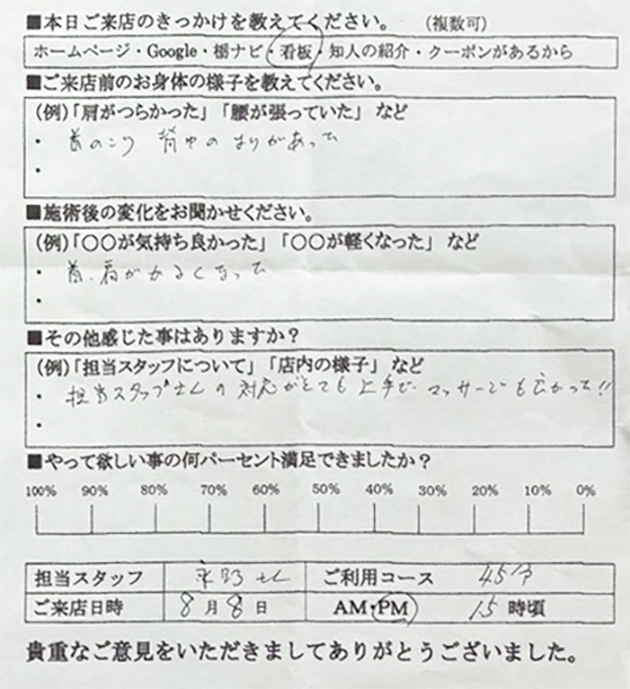 ■本日ご来店のきっかけを教えてください。 (複数可)
ホームページ・Google・栃ナビ・看板・知人の紹介・クーポンがあるから
■ご来店前のお身体の様子を教えてください。
(例)「肩がつらかった」「腰が張っていた」など
・ 首のこり 背中のはりがあった
・
■施術後の変化をお聞かせください。
(例)「〇〇が気持ち良かった」「〇〇が軽くなった」など
・ 首、肩がかるくなった
・
■その他感じた事はありますか？
(例)「担当スタッフについて」「店内の様子」など
・ 担当スタッフさんの対応がとても上手で マッサージも良かった!!
・
■やって欲しい事の何パーセント満足できましたか？
100% 90% 80% 70% 60% 50% 40% 30% 20% 10% 0%
担当スタッフ さん ご利用コース 45分
ご来店日時 8月8日 AM・PM 15時頃
貴重なご意見をいただきましてありがとうございました。